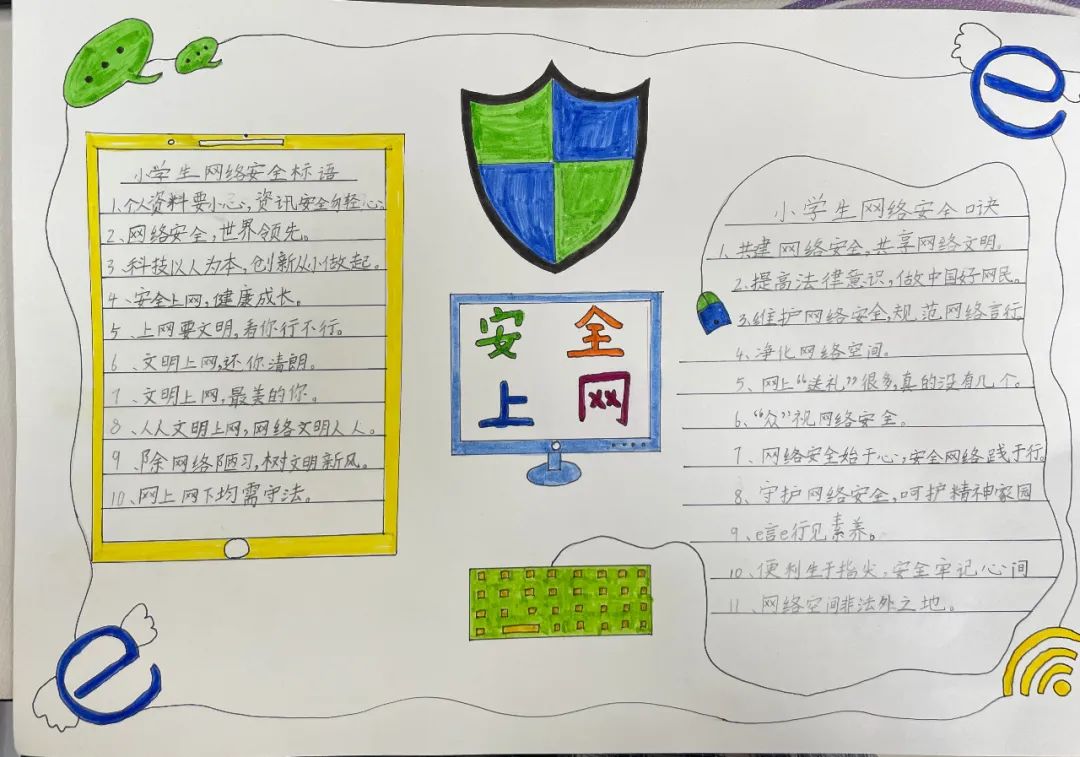 小学生网络安全标语
1、个人资料要小心,资讯安全勿轻心。
2、网络安全,世界领先。
3、科技以人为本,创新从小做起。
4、安全上网,健康成长。
5、上网要文明,看你行不行。
6、文明上网,还你清朗。
7、文明上网,最美的你。
8、人人文明上网,网络文明人人。
9、除网络陋习,树文明新风。
10、网上网下均需守法。
安全
上网
小学生网络安全口诀
1、共建网络安全,共享网络文明。
2、提高法律意识,做中国好网民。
3、维护网络安全,规范网络言行
4、净化网络空间。
5、网上“送礼”很多,真的没有几个。
6、“众”视网络安全。
7、网络安全始于心,安全网络践于行。
8、守护网络安全,呵护精神家园
9、e言e行见素养。
10、便利生于指尖,安全牢记心间
11、网络空间非法外之地。